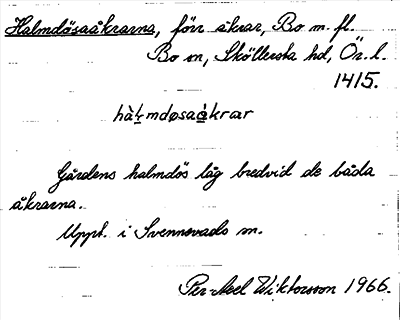 Halmdösaåkrarna, förr åkrar, Bo m. fl.
Bo sn, Sköllersta hd, Ör. l.
1415.
hàḷmdøsaå̀krar
Gårdens halmdös låg bredvid de båda
åkrarna.
Uppt. i Svennevads sn.
Per-Axel Wiktorsson 1966.